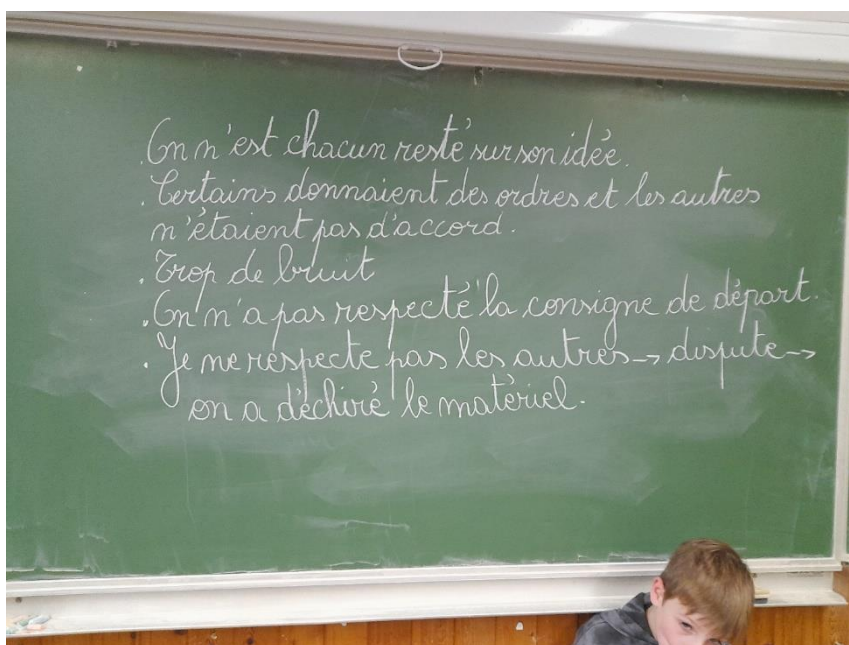 . On n'est chacun resté sur son idée.
. Certains donnaient des ordres et les autres
n'étaient pas d'accord.
. Trop de bruit
. On n'a pas respecté la consigne de départ.
. Je ne respecte pas les autres → dispute →
on a déchiré le matériel.